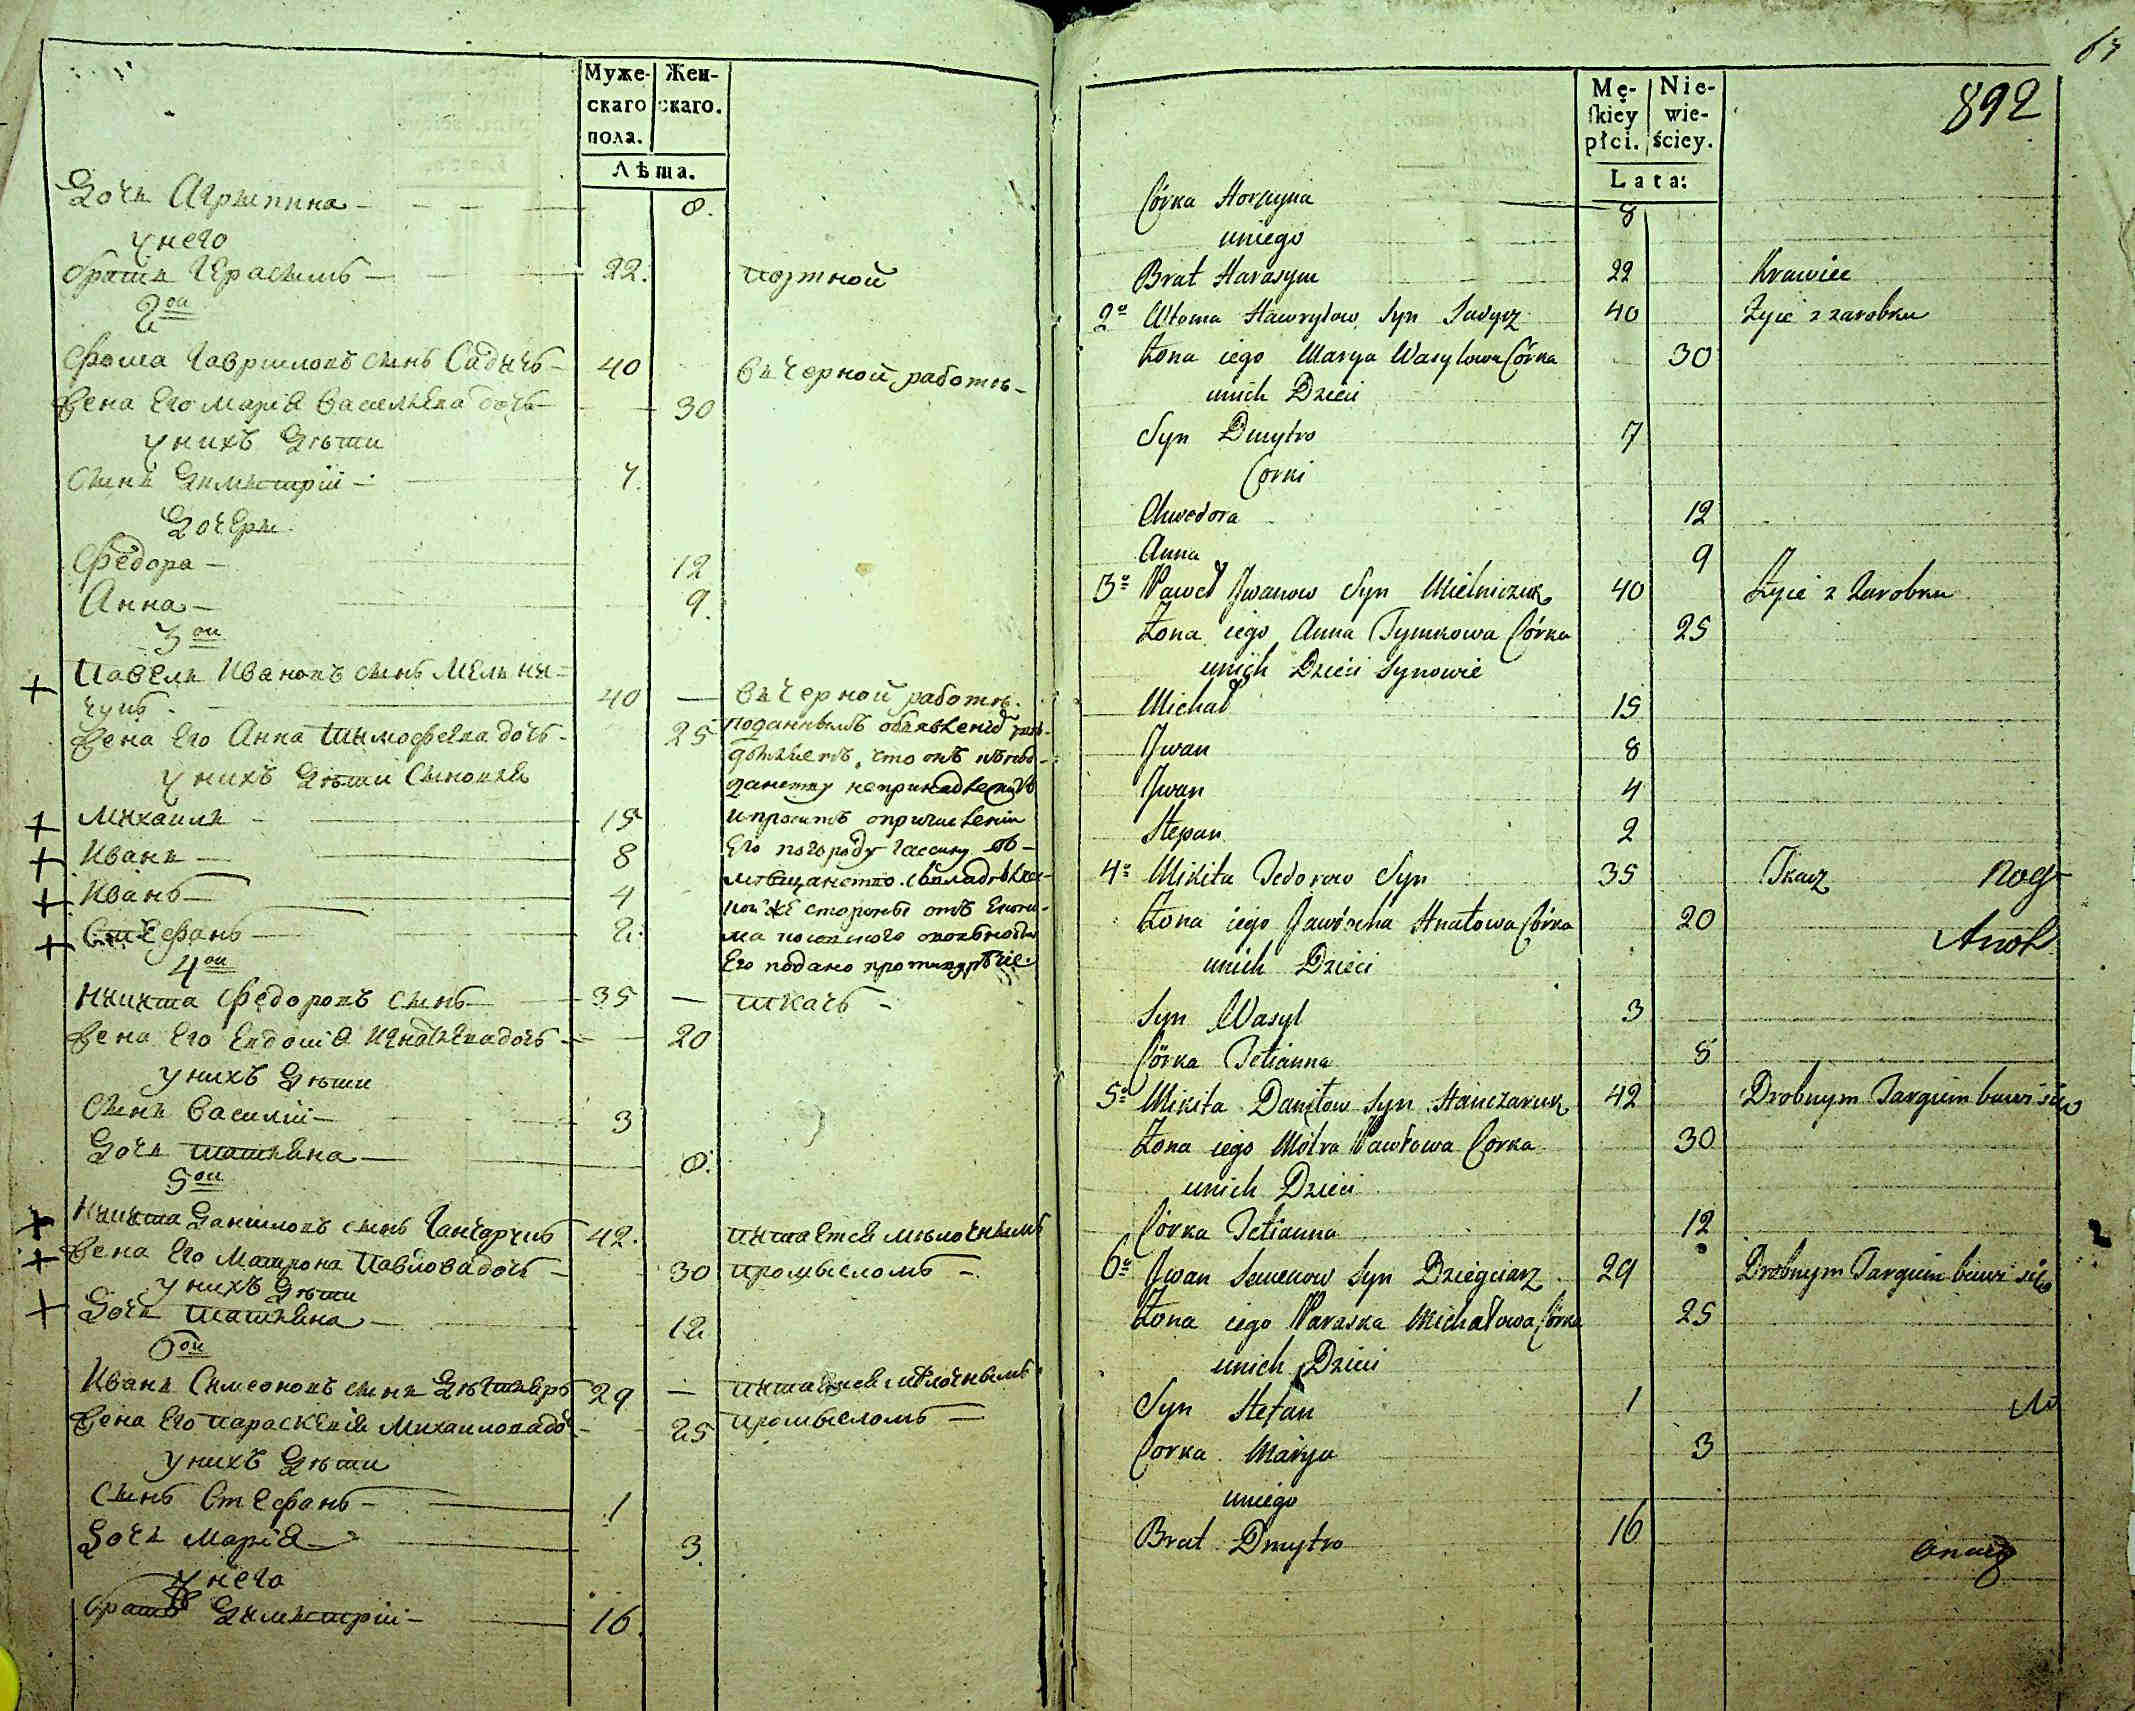 Муже- Жен-
скаго скаго.
пола.
Лѣта.
Дочь Агрипина 8.
у него
братъ Герасимъ 22. портной
2ои
Фома Гавриловъ сынъ Садычъ 40 въ черной работѣ
Жена Его Марія Васильева дочь 30
у нихъ Дѣти
Сынъ Димитрій 7.
Дочери
Федора 12
Анна 9.
3ои
Павелъ Ивановъ сынъ Мельни-
чукъ 40 въ черной работѣ.
Жена Его Анна Тимофеева дочь 25
у нихъ Дѣти Сыновья
Михаилъ 15
Иванъ 8
Иванъ 4
Стефанъ 2.
4ои
Никита Федоровъ сынъ 35 ткачъ
Жена Его Евдокія Игнатьева дочь 20
у нихъ Дѣти
Сынъ Василій 3
Дочь Татьяна 8.
5ои
Никита Даниловъ сынъ Ганчарукъ 42. питается мѣлочнымъ
Жена Его Матрона Павлова дочь 30 промысломъ
у нихъ Дѣти
Дочь Татьяна 12
6ои
Иванъ Симеоновъ сынъ Дѣгтяръ 29 питается мѣлочнымъ
Жена Его Параскевія Михаилова до 25 промысломъ
у нихъ Дѣти
Сынъ Стефанъ 1
Дочь Марія 3
у него
братъ Димитрій 16.
63
892
Mę- Nie-
ſkiey wie-
płci. ściey.
Lata:
Córka Horpyna 8
uniego
Brat Harasym 22 Krawiec
2o Choma Hawryłow Syn Sadycz 40 Żyie z zarobku
Żona iego Marya Wasylowa Córka 30
unich Dzieci
Syn Dmytro 7
Corki
Chwedora 12
Anna 9
3o Paweł Jwanow Syn Mielniczuk 40 Żyie z Zarobku
Żona iego Anna Tymkowa Córka 25
unich Dzieci Synowie
Michał 15
Jwan 8
Jwan 4
Stepan 2
4o Mikita Fedorow Syn 35 Tkacz
Żona iego Jawdocha Hnatowa Córka 20
unich Dzieci
Syn Wasyl 3
Córka Tetianna 8
5o Mikita Daniłow Syn Hanczaruk 42 Drobnym Targiem bawi się
Żona iego Motra Pawłowa Corka 30
unich Dzieci
Córka Tetianna 12
6o Jwan Semenow Syn Dziegciarz 29 Drobnym Targiem bawi się
Żona iego Paraska Michałowa Córka 25
unich Dzieci
Syn Stefan 1
Corka Marya 3
uniego
Brat Dmytro 16